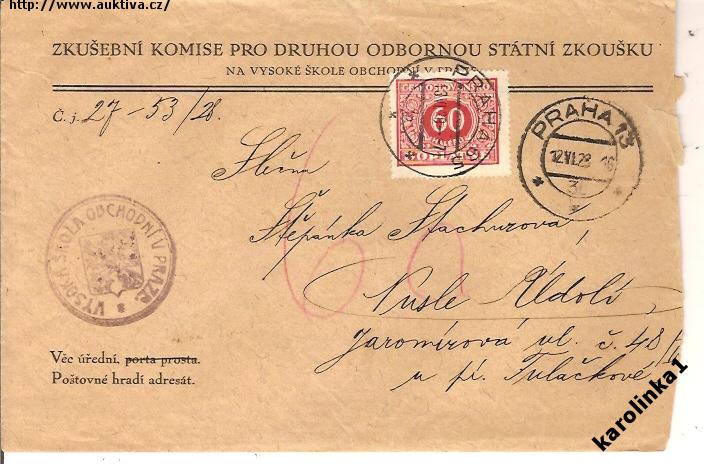 http://www.auktiva.cz/
ZKUŠEBNÍ KOMISE PRO DRUHOU ODBORNOU STÁTNÍ ZKOUŠKU
NA VYSOKÉ ŠKOLE OBCHODNÍ V PRAZE
Č. j. 27-53/28.
60
PRAHA 65
PRAHA 13
12.VI.28
Slečna
Štěpánka Stachurova,
60
Nusle Údolí,
Jaromírová ul. č. 48/
u pí. Tuláčkové
VYSOKÁ ŠKOLA OBCHODNÍ V PRAZE
Věc úřední, porta prosta.
Poštovné hradí adresát.
karolinka1